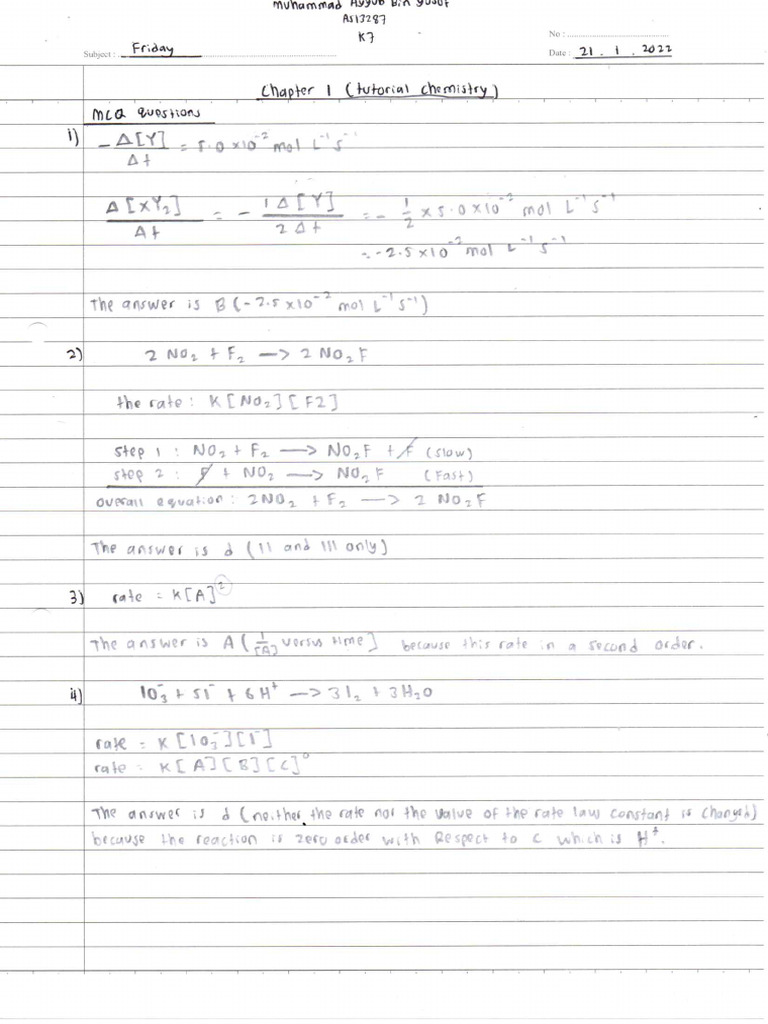 Muhammad Ayyub Bin Yusof
AS13287
K7
No :
Subject : Friday
Date : 21 . 1 . 2022
Chapter 1 (tutorial chemistry)
MCQ questions
1) - Δ[Y]/Δt = 5.0 x10⁻² mol L⁻¹ s⁻¹
Δ[XY₂]/Δt = - 1Δ[Y]/2Δt = - 1/2 x 5.0 x10⁻² mol L⁻¹ s⁻¹
= -2.5 x10⁻² mol L⁻¹ s⁻¹
The answer is B (-2.5 x10⁻² mol L⁻¹ s⁻¹)
2) 2 NO₂ + F₂ —> 2 NO₂F
the rate : K [NO₂] [F2]
step 1 : NO₂ + F₂ —> NO₂F + F (slow)
step 2 : F + NO₂ —> NO₂F (Fast)
overall equation : 2NO₂ + F₂ —> 2 NO₂F
The answer is d (II and III only)
3) rate = K[A]²
The answer is A (1/[A] versus time) because this rate in a second order.
4) IO₃⁻ + 5I⁻ + 6H⁺ —> 3I₂ + 3H₂O
rate = K [IO₃⁻] [I⁻]
rate = K [A] [B] [C]⁰
The answer is d (neither the rate nor the value of the rate law constant is changed)
because the reaction is zero order with Respect to C which is H⁺.